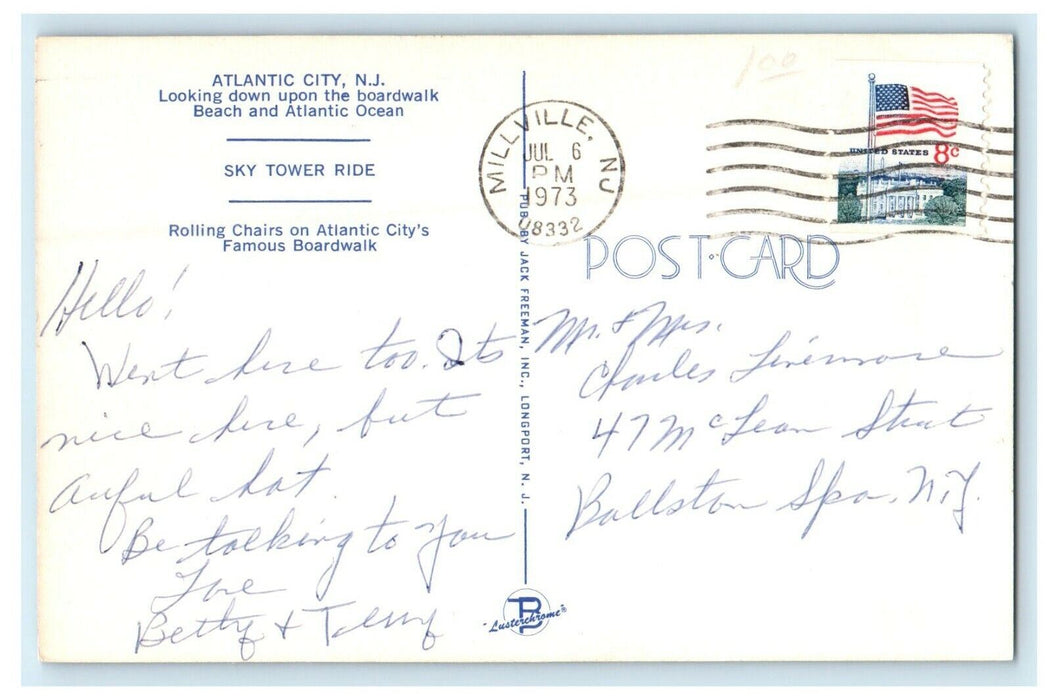 ATLANTIC CITY, N.J.
Looking down upon the boardwalk
Beach and Atlantic Ocean
SKY TOWER RIDE
Rolling Chairs on Atlantic City's
Famous Boardwalk
Hello!
Went here too. Its
nice here, but
awful hot.
Be talking to you
Love
Betty & Terry
PUB. BY JACK FREEMAN, INC., LONGPORT, N. J.
"Lusterchrome"
MILLVILLE, NJ
JUL 6
PM
1973
08332
1.00
UNITED STATES 8c
POST CARD
Mr. & Mrs.
Charles Livermore
47 McLean Street
Ballston Spa, N.Y.